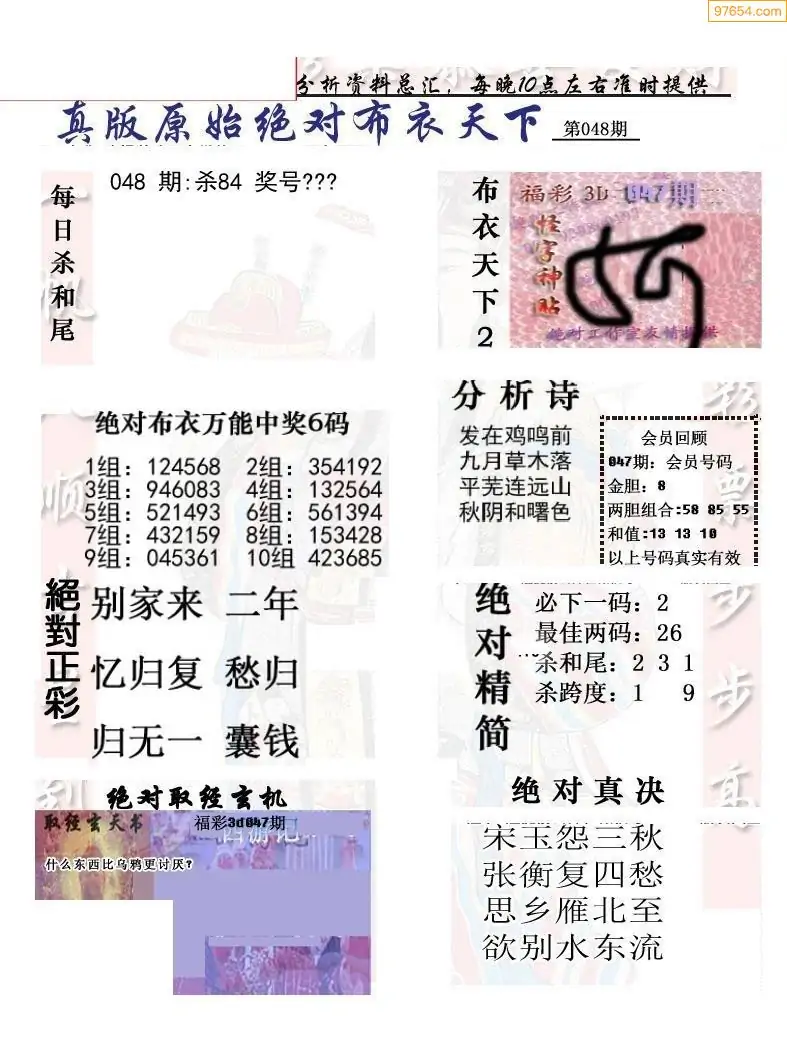 97654.com
分析资料总汇，每晚10点左右准时提供
真版原始绝对布衣天下 第048期
每日杀和尾
048 期:杀84 奖号???
布衣天下2
福彩 3D 047期
怪字神贴
绝对布衣万能中奖6码
1组: 124568 2组: 354192
3组: 946083 4组: 132564
5组: 521493 6组: 561394
7组: 432159 8组: 153428
9组: 045361 10组 423685
分析诗
发在鸡鸣前
九月草木落
平芜连远山
秋阴和曙色
会员回顾
047期: 会员号码
金胆: 8
两胆组合:58 85 55
和值:13 13 10
以上号码真实有效
絕對正彩
别家来 二年
忆归复 愁归
归无一 囊钱
绝对精简
必下一码: 2
最佳两码: 26
杀和尾: 2 3 1
杀跨度: 1 9
绝对取经玄机
取经玄天书 福彩3d047期
西游记
什么东西比乌鸦更讨厌?
绝对真决
宋玉怨三秋
张衡复四愁
思乡雁北至
欲别水东流